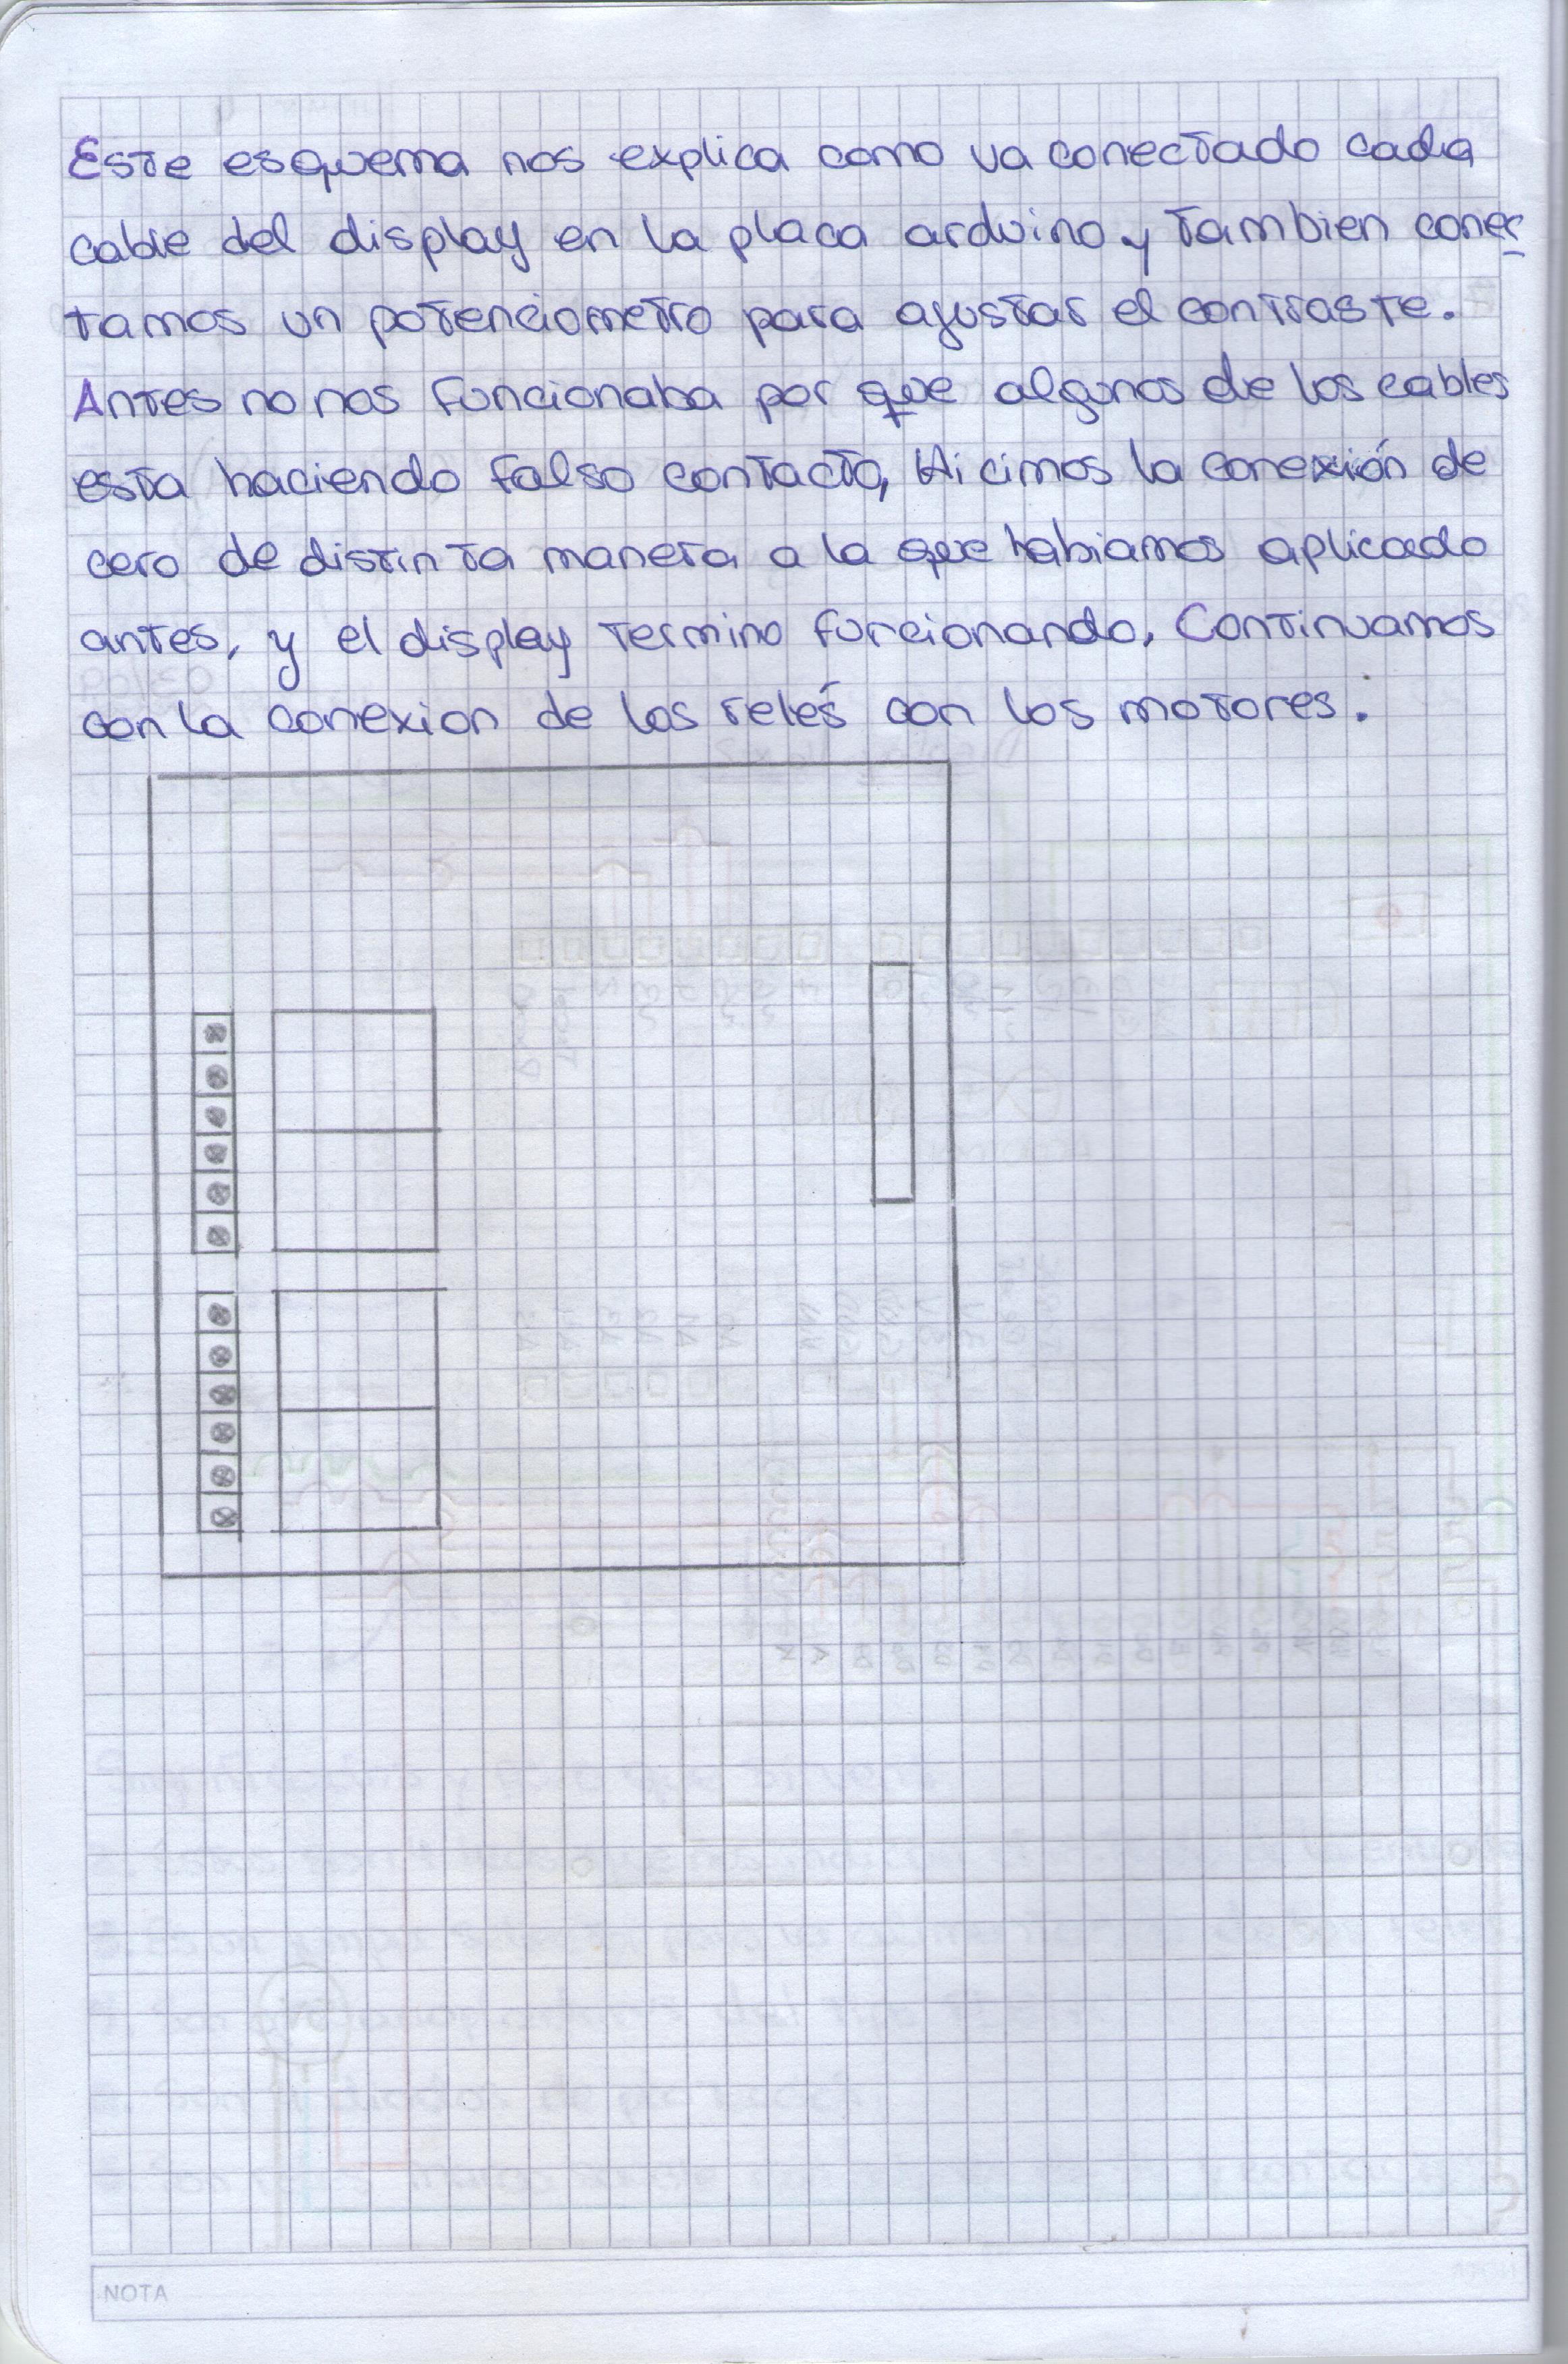 Este esquema nos explica como va conectado cada
cable del display en la placa arduino y tambien conec
tamos un potenciometro para ajustar el contraste.
Antes no nos funcionaba por que algunos de los cables
esta haciendo falso contacto, Hicimos la conexión de
cero de distinta manera a la que habiamos aplicado
antes, y el display termino funcionando, Continuamos
con la conexion de los relés con los motores.
NOTA